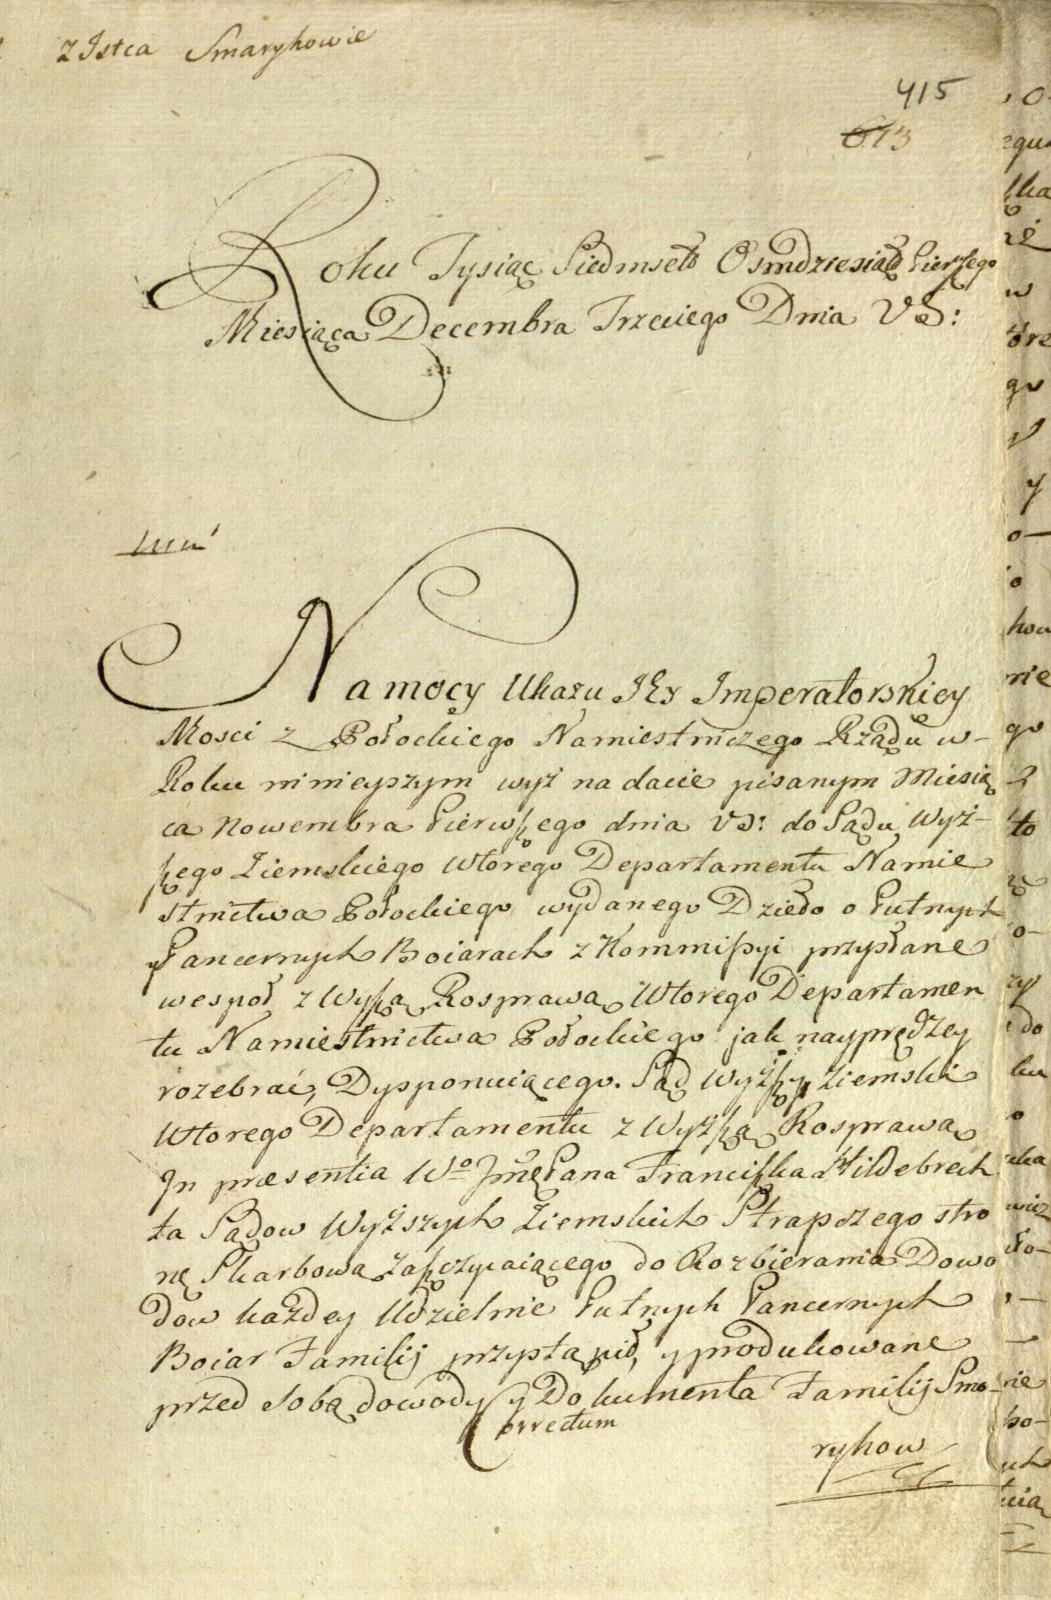 z Istca Smarykowie
415
613
Roku Tysiąc Siedmset Osmdziesiąt Pierszego
Miesiąca Decembra Trzeciego Dnia VS:
Na mocy Ukazu JEy Imperatorskiey
Mosci z Połockiego Namiestniczego Rządu w-
Roku ninieyszym wyż na dacie pisanym Miesią
ca Nowembra Pierwszego dnia VS: do Sądu Wyż-
szego Ziemskiego Wtorego Departamentu Namie
stnictwa Połockiego wydanego Dzieło o Putnych
y Pancernych Boiarach z Kommissyi przysłane
wespoł z Wyszą Rosprawą Wtorego Departamen
tu Namiestnictwa Połockiego jak nayprędzey
rozebrać, Dysponuiącego. Sąd Wyższy Ziemski
Wtorego Departamentu z Wyższą Rosprawą
In præsentia Wo Jmć Pana Franciszka Hildebrech
ta Sądow Wyższych Ziemskich Strapczego stro
nę Skarbową Zaszczycaiącego do Rozbierania Dowo
dow każdey Udzielnie Putnych Pancernych
Boiar Familij przystąpił, y produkowane
przed Sobą dowody y Dokumenta Familij Smo-
Correctum
rykow